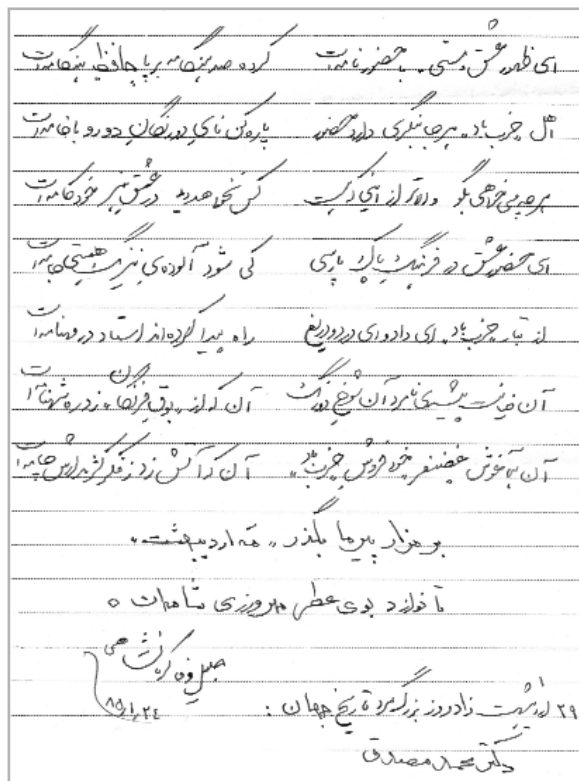 ای ظهور عشق و مستی، با حضور نامه‌ات کرده صد هنگامه برپا چامه‌ات
اهل حزب باد هر جا دارد حضور پاره کن نای دورنگان دو رو با خامه‌ات
هر چه می‌خواهی بگو والاتر از کس نخواهد دید در عشق خودکامه‌ات
ای حضور عشق در فرهنگ پاک پارسی کی شود آلوده‌ی نیرنگ هستی جامه‌ات
از تبار حزب باد، ای داد و ای درد و دریغ راه پیدا کرده‌اند استاد در
آن خیانت پیشه‌ی نامرد آن شوخ دورنگ آن که از بوق فرنگان زد ره شهنامه‌ات
آن هم‌آغوش غضنفر خودفروش حزب باد آن که آتش زد ز فکر چامه‌ات
بر مزار پیر ما بگذر، مه اردیبهشت،
تا نوازد بوی عطر شامه‌ات
۸۵/۱/۲۴
۲۹ اردیبهشت زادروز بزرگمرد تاریخ جهان :
دکتر محمد مصدق